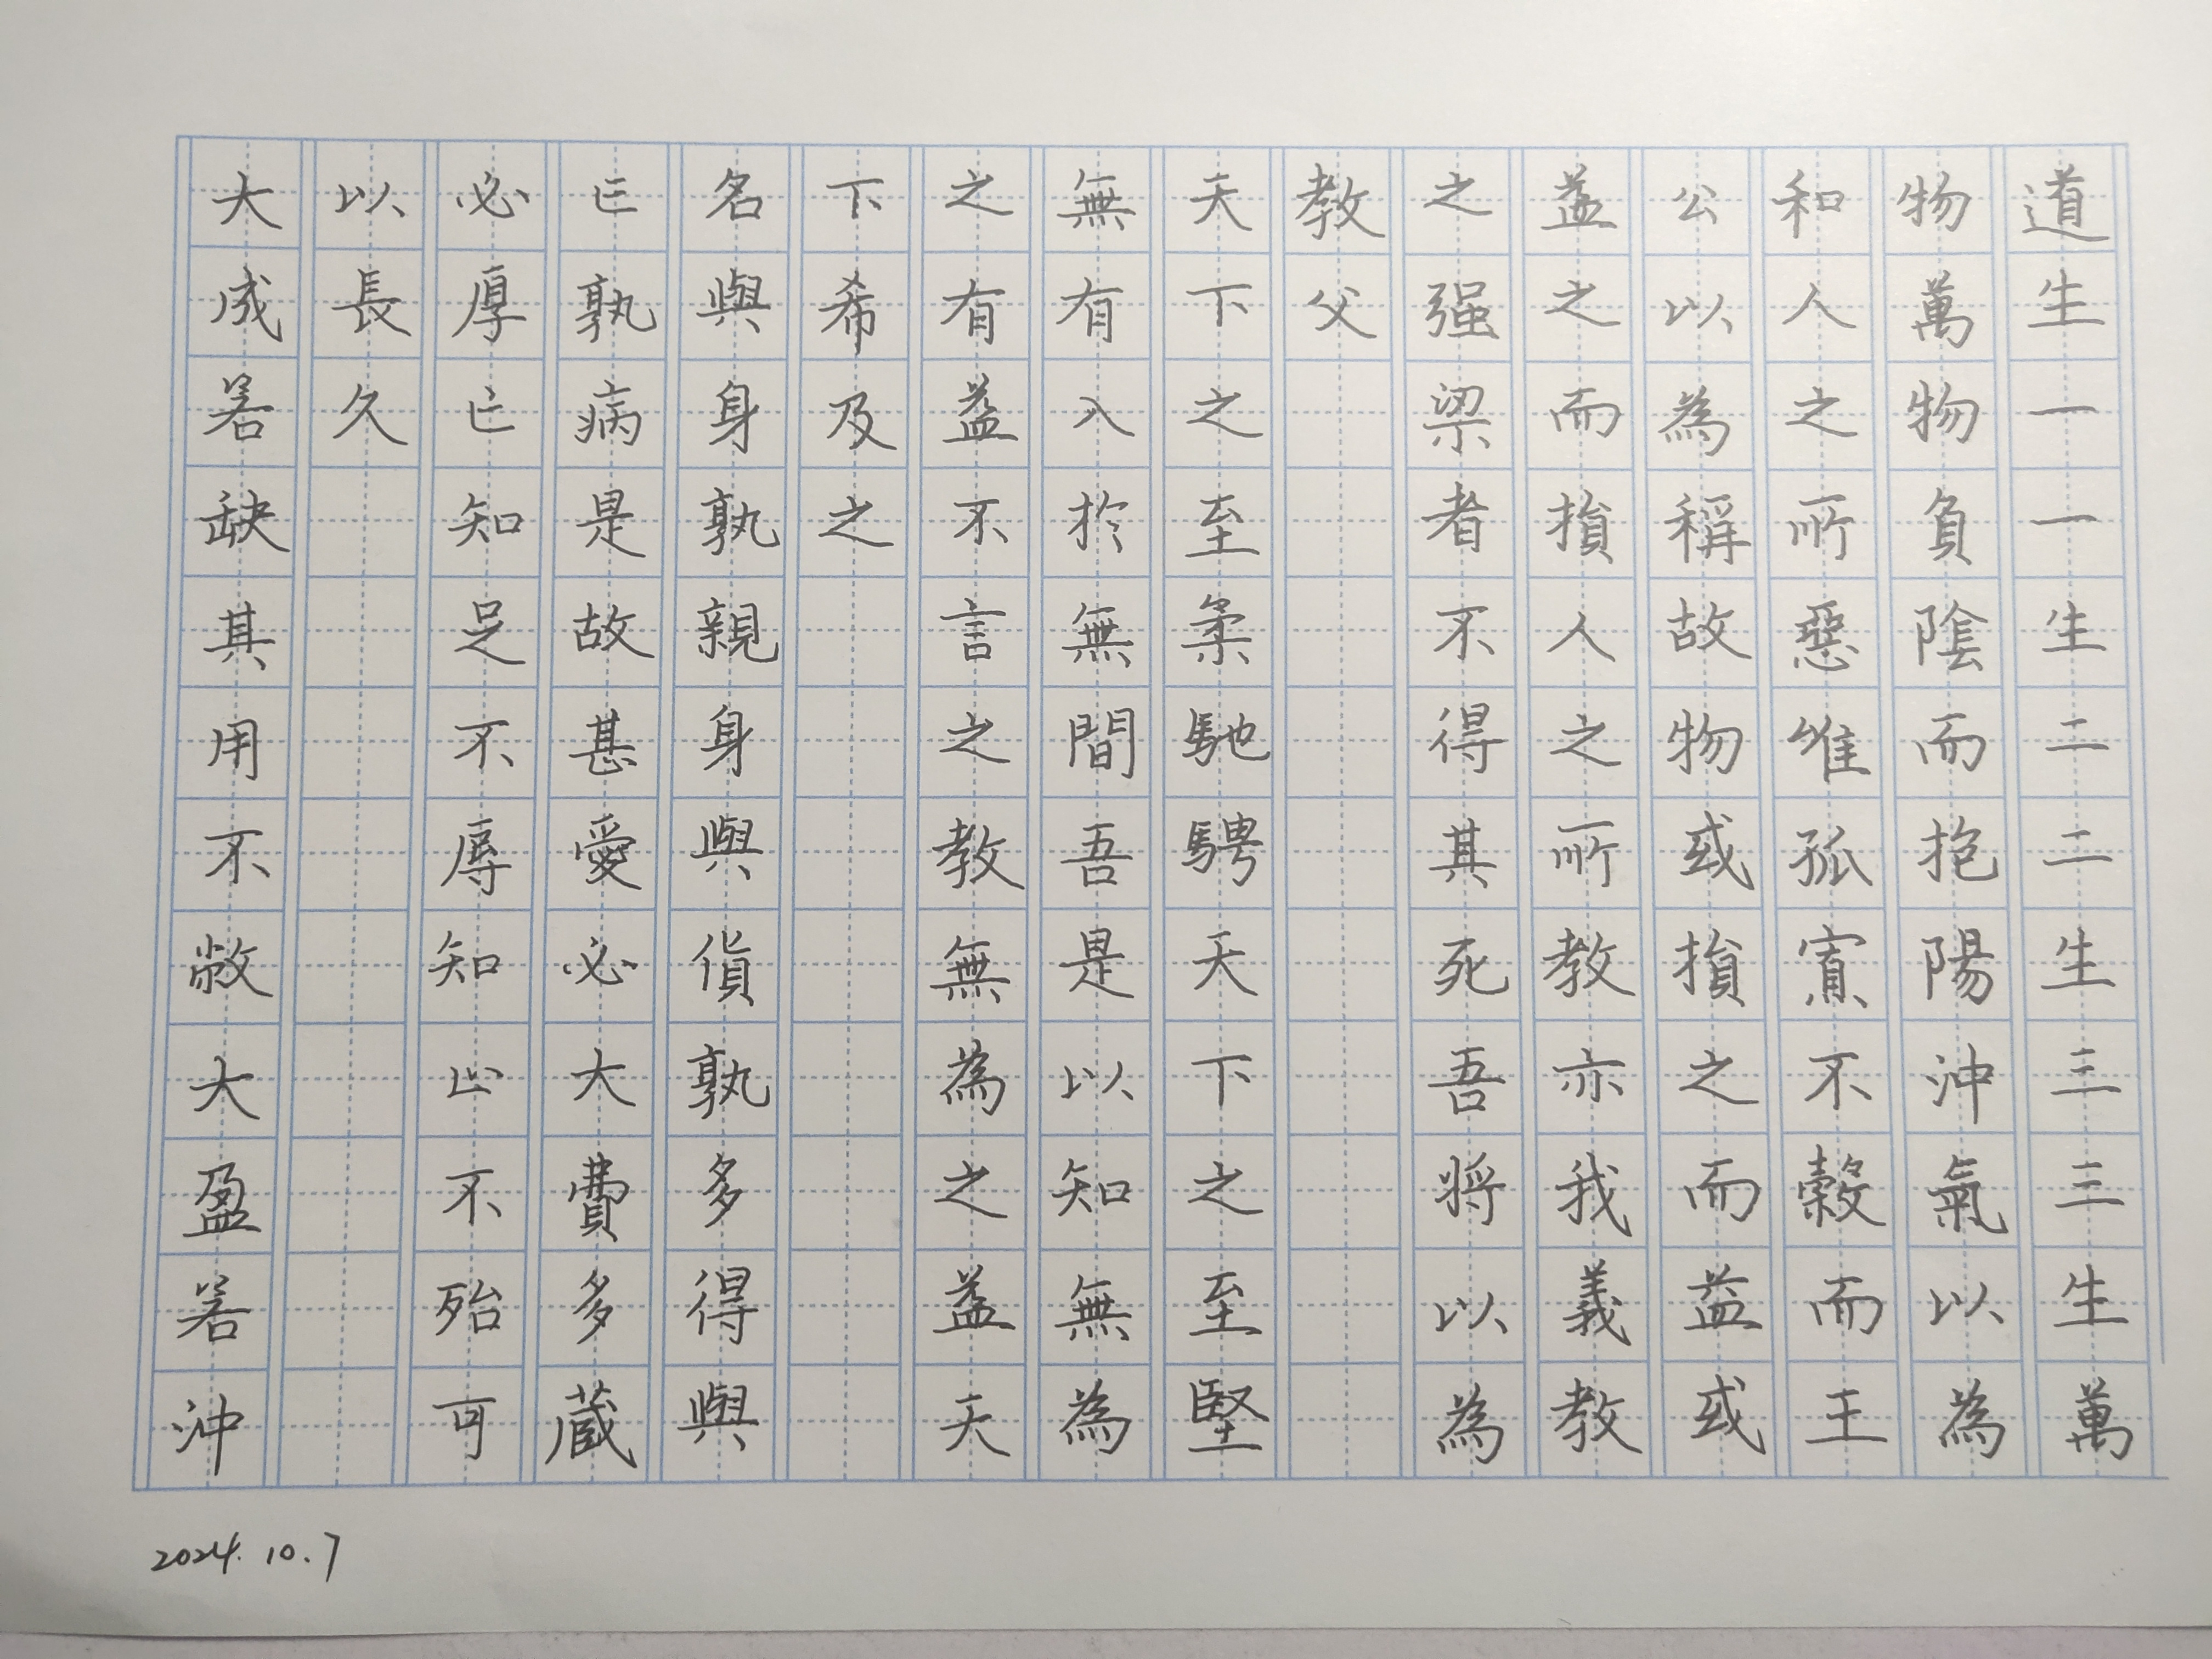 道生一一生二二生三三生萬
物萬物負陰而抱陽沖氣以為
和人之所惡唯孤寡不穀而王
公以為稱故物或損之而益或
益之而損人之所教亦我義教
之强梁者不得其死吾將以為
教父
天下之至柔馳騁天下之至堅
無有入於無間吾是以知無為
之有益不言之教無為之益天
下希及之
名與身孰親身與貨孰多得與
亡孰病是故甚愛必大費多藏
必厚亡知足不辱知止不殆可
以長久
大成若缺其用不敝大盈若沖
2024.10.7